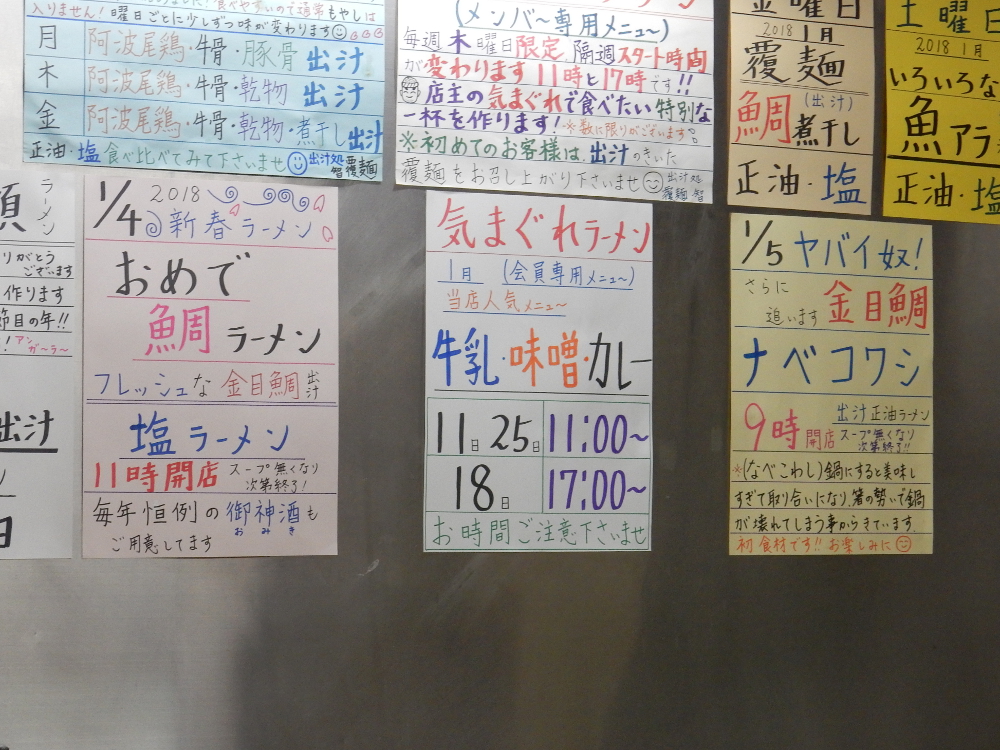 入りません！食べやすいので通常もやしは
曜日ごとに少しずつ味が変わります
月 阿波尾鶏・牛骨・豚骨 出汁
木 阿波尾鶏・牛骨・乾物 出汁
金 阿波尾鶏・牛骨・乾物・煮干し出汁
正油・塩 食べ比べてみて下さいませ 出汁処 覆麺 智
(メンバ～専用メニュ～)
毎週木曜日限定 隔週スタート時間
が変わります 11時と17時です!!
店主の気まぐれで食べたい特別な
一杯を作ります！※数に限りがございます
※初めてのお客様は、出汁のきいた
覆麺をお召し上がり下さいませ 出汁処 覆麺 智
金曜日
2018 1月
覆麺
鯛(出汁)煮干し
正油・塩
土曜日
2018 1月
いろいろな
魚アラ
正油・塩
ラーメン
りがとう
ございます
作ります
節目の年!!
！アンガ～ラ～
出汁
日
1/4 2018
新春ラーメン
おめで
鯛ラーメン
フレッシュな 金目鯛 出汁
塩ラーメン
11時開店 スープ無くなり次第終了！
毎年恒例の御神酒も
おみき
ご用意してます
気まぐれラーメン
1月 (会員専用メニュ～)
当店人気メニュ～
牛乳・味噌・カレー
11日 25日 11:00～
18日 17:00～
お時間ご注意下さいませ
1/5 ヤバイ奴！
さらに
追います 金目鯛
ナベコワシ
9時開店 出汁正油ラーメン
スープ無くなり次第終了!!
※(なべこわし)鍋にすると美味し
すぎて取り合いになり、箸の勢いで鍋
が壊れてしまう事からきています。
初食材です!!お楽しみに